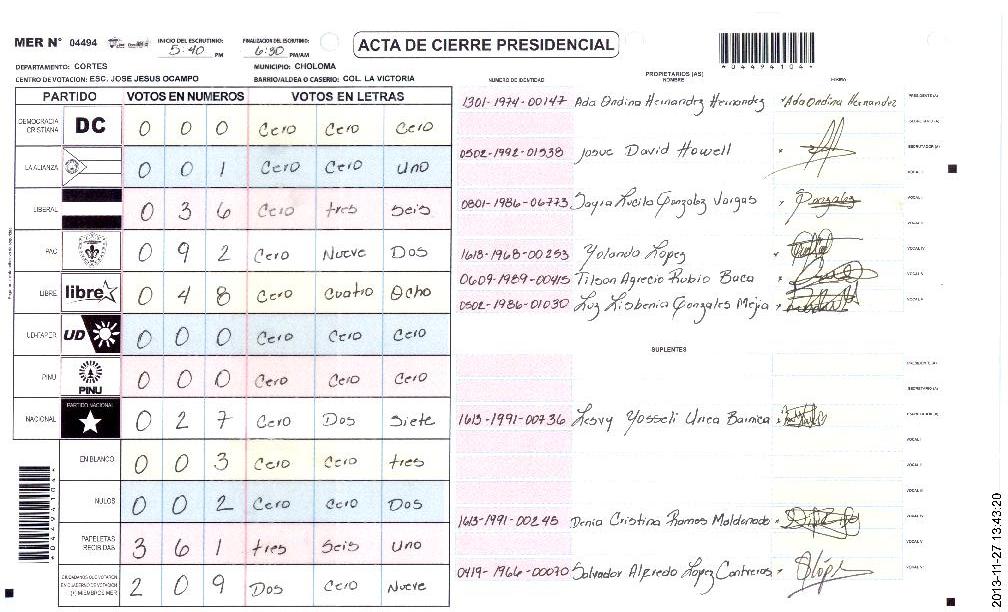 MER N° 04494
INICIO DEL ESCRUTINIO: 5:40 PM
FINALIZACION DEL ESCRUTINIO: 6:30 PM/AM
ACTA DE CIERRE PRESIDENCIAL
*0449410 4*
DEPARTAMENTO: CORTES
MUNICIPIO: CHOLOMA
CENTRO DE VOTACION: ESC. JOSE JESUS OCAMPO
BARRIO/ALDEA O CASERIO: COL. LA VICTORIA
PARTIDO VOTOS EN NUMEROS VOTOS EN LETRAS
DEMOCRACIA CRISTIANA DC 0 0 0 Cero Cero Cero
LA ALIANZA 0 0 1 Cero Cero Uno
LIBERAL 0 3 6 Cero tres Seis
PAC 0 9 2 Cero Nueve Dos
LIBRE libre 0 4 8 Cero Cuatro Ocho
UD-FAPER UD 0 0 0 Cero Cero Cero
PINU PINU 0 0 0 Cero Cero Cero
NACIONAL PARTIDO NACIONAL 0 2 7 Cero Dos Siete
EN BLANCO 0 0 3 Cero Cero tres
NULOS 0 0 2 Cero Cero Dos
PAPELETAS RECIBIDAS 3 6 1 tres Seis uno
CIUDADANOS QUE VOTARON EN CUADERNO DE VOTACION (+) MIEMBROS MER 2 0 9 Dos Cero Nueve
NUMERO DE IDENTIDAD PROPIETARIOS (AS) NOMBRE FIRMA
1301-1974-00147 Ada Ondina Hernandez Hernandez Ada Ondina Hernandez PRESIDENTE (A)
SECRETARIO (A)
0502-1992-01538 Josue David Howell ESCRUTADOR (A)
VOCAL I
0801-1986-06773 Sayra Lucila Gonzalez Vargas Gonzalez VOCAL II
1613-1968-00253 Yolanda Lopez VOCAL IV
0609-1989-00415 Tilson Agrecio Rubio Baca VOCAL V
0502-1986-01030 Luz Lisbenia Gonzales Mejia
SUPLENTES
PRESIDENTE (A)
SECRETARIO (A)
1613-1991-00736 Lesvy Yosseli Unea Barnica
VOCAL I
VOCAL II
VOCAL III
1613-1991-00245 Denia Cristina Ramos Maldonado VOCAL IV
VOCAL V
0419-1966-00070 Salvador Alfredo Lopez Contreras
2013-11-27 13:43:20